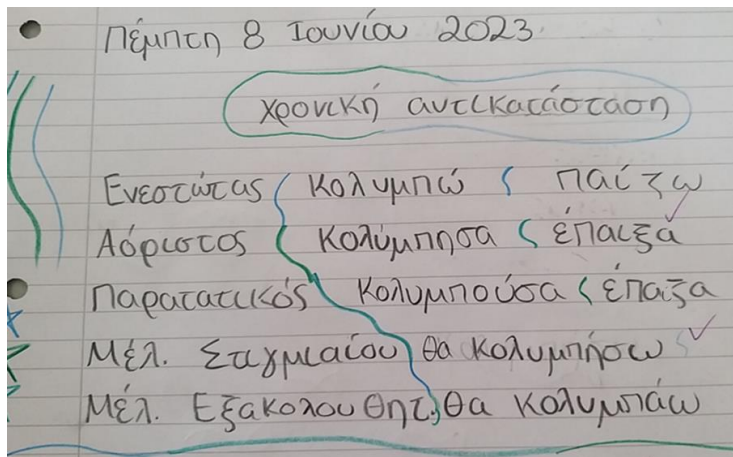 Πέμπτη 8 Ιουνίου 2023.
χρονική αντικατάσταση
Ενεστώτας κολυμπώ παίζω
Αόριστος κολύμπησα έπαιξα
Παρατατικός κολυμπούσα έπαιζα
Μέλ. Στιγμιαίου θα κολυμπήσω
Μέλ. Εξακολουθητ. θα κολυμπάω